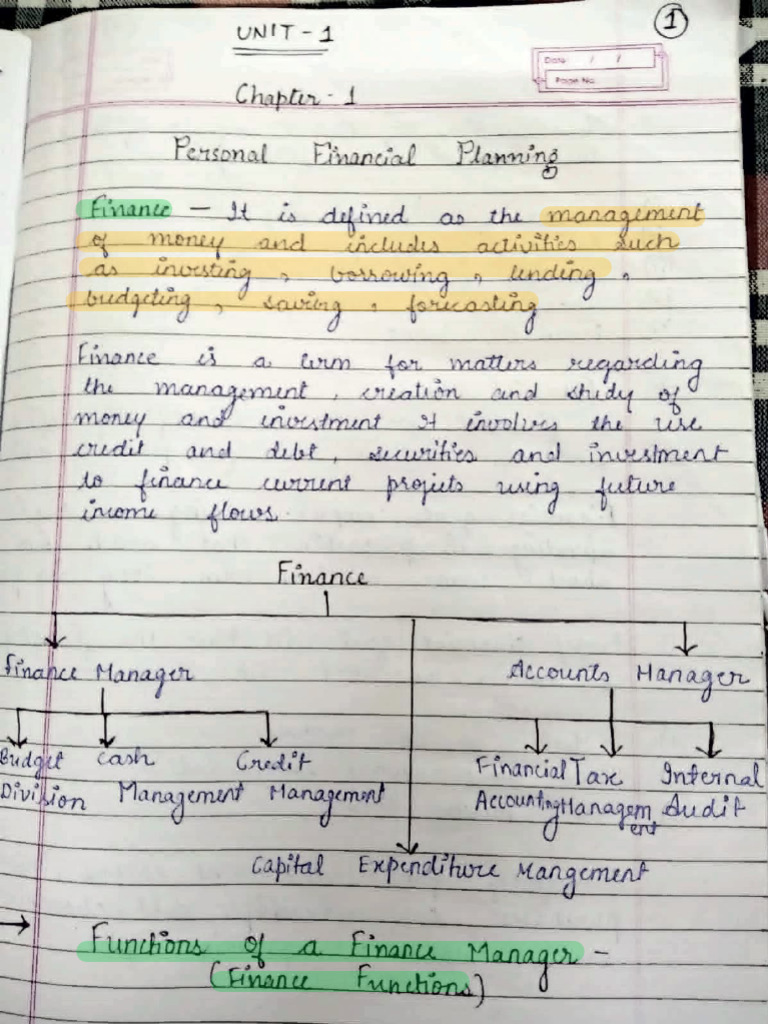 1
UNIT - 1
Date / /
Page No.
Chapter - 1
Personal Financial Planning
Finance — It is defined as the management
of money and includes activities such
as investing, borrowing, lending,
budgeting, saving, forecasting
Finance is a term for matters regarding
the management, creation and study of
money and investment It involves the use
credit and debt, securities and investment
to finance current projects using future
income flows.
Finance
Finance Manager
Accounts Manager
Budget Division
Cash Management
Credit Management
Financial Accounting
Tax Management
Internal Audit
Capital Expenditure Mangement
→ Functions of a Finance Manager -
(Finance Functions)